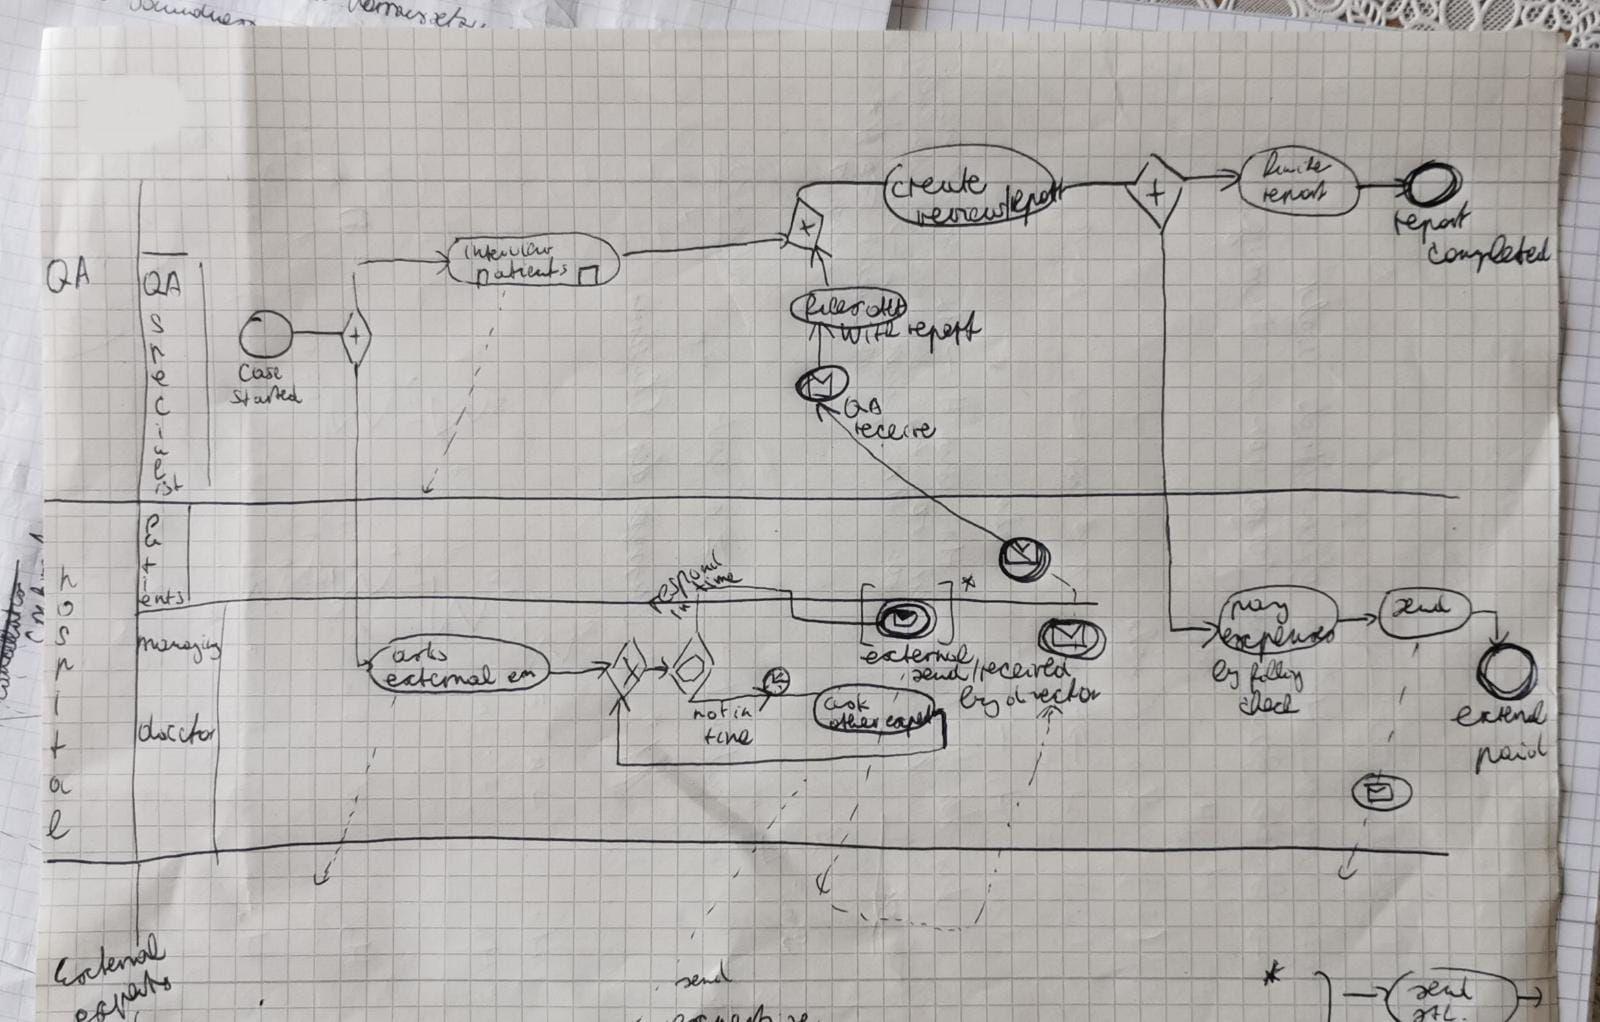 QA
QA
S
p
e
c
i
a
l
ist
Case
started
interview
patients
create
review/report
report
report
completed
with report
QA
receive
h
o
s
p
i
t
a
l
managing
asks
external
respond
in time
not in
time
ask
other
external
send/received
by director
*
pay
expenses
by
check
send
paid
External
experts
send
*
send